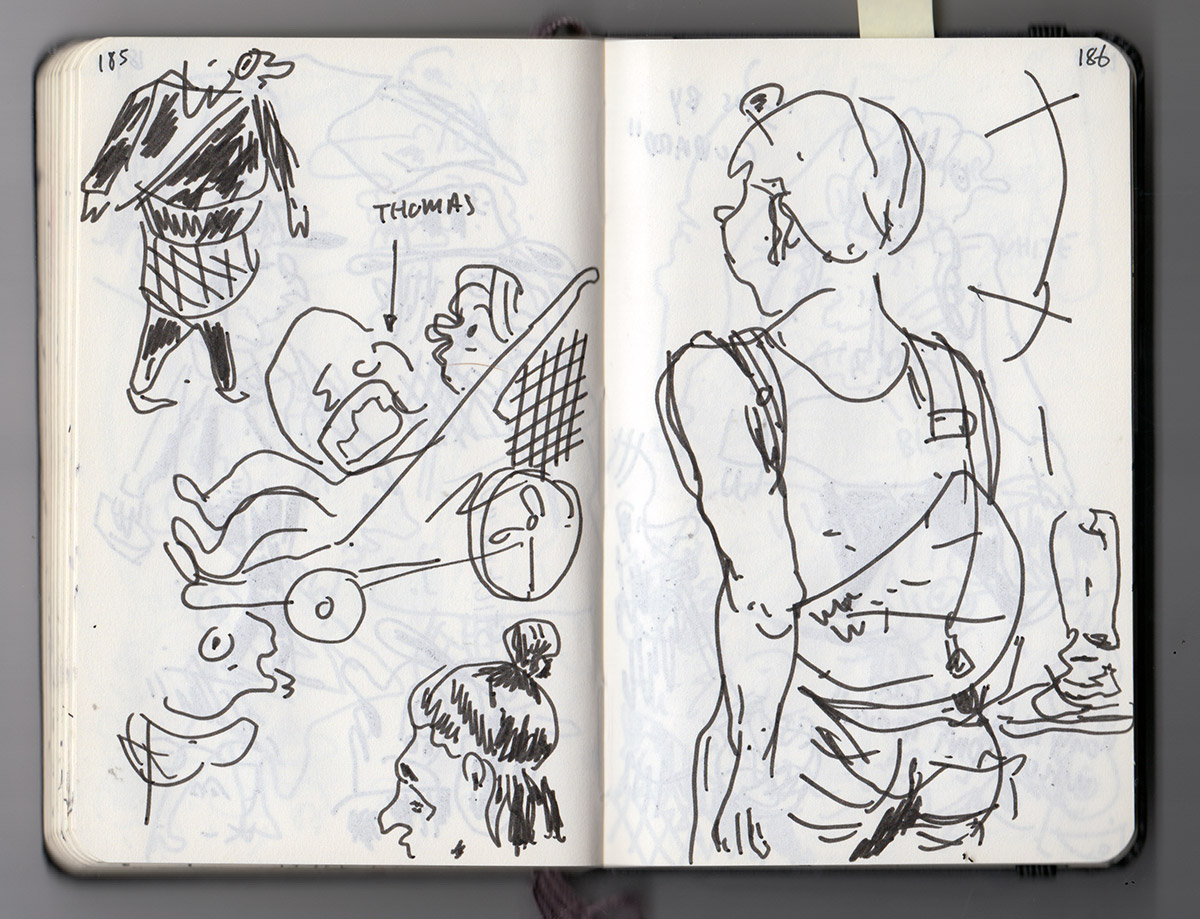 185
THOMAS
186